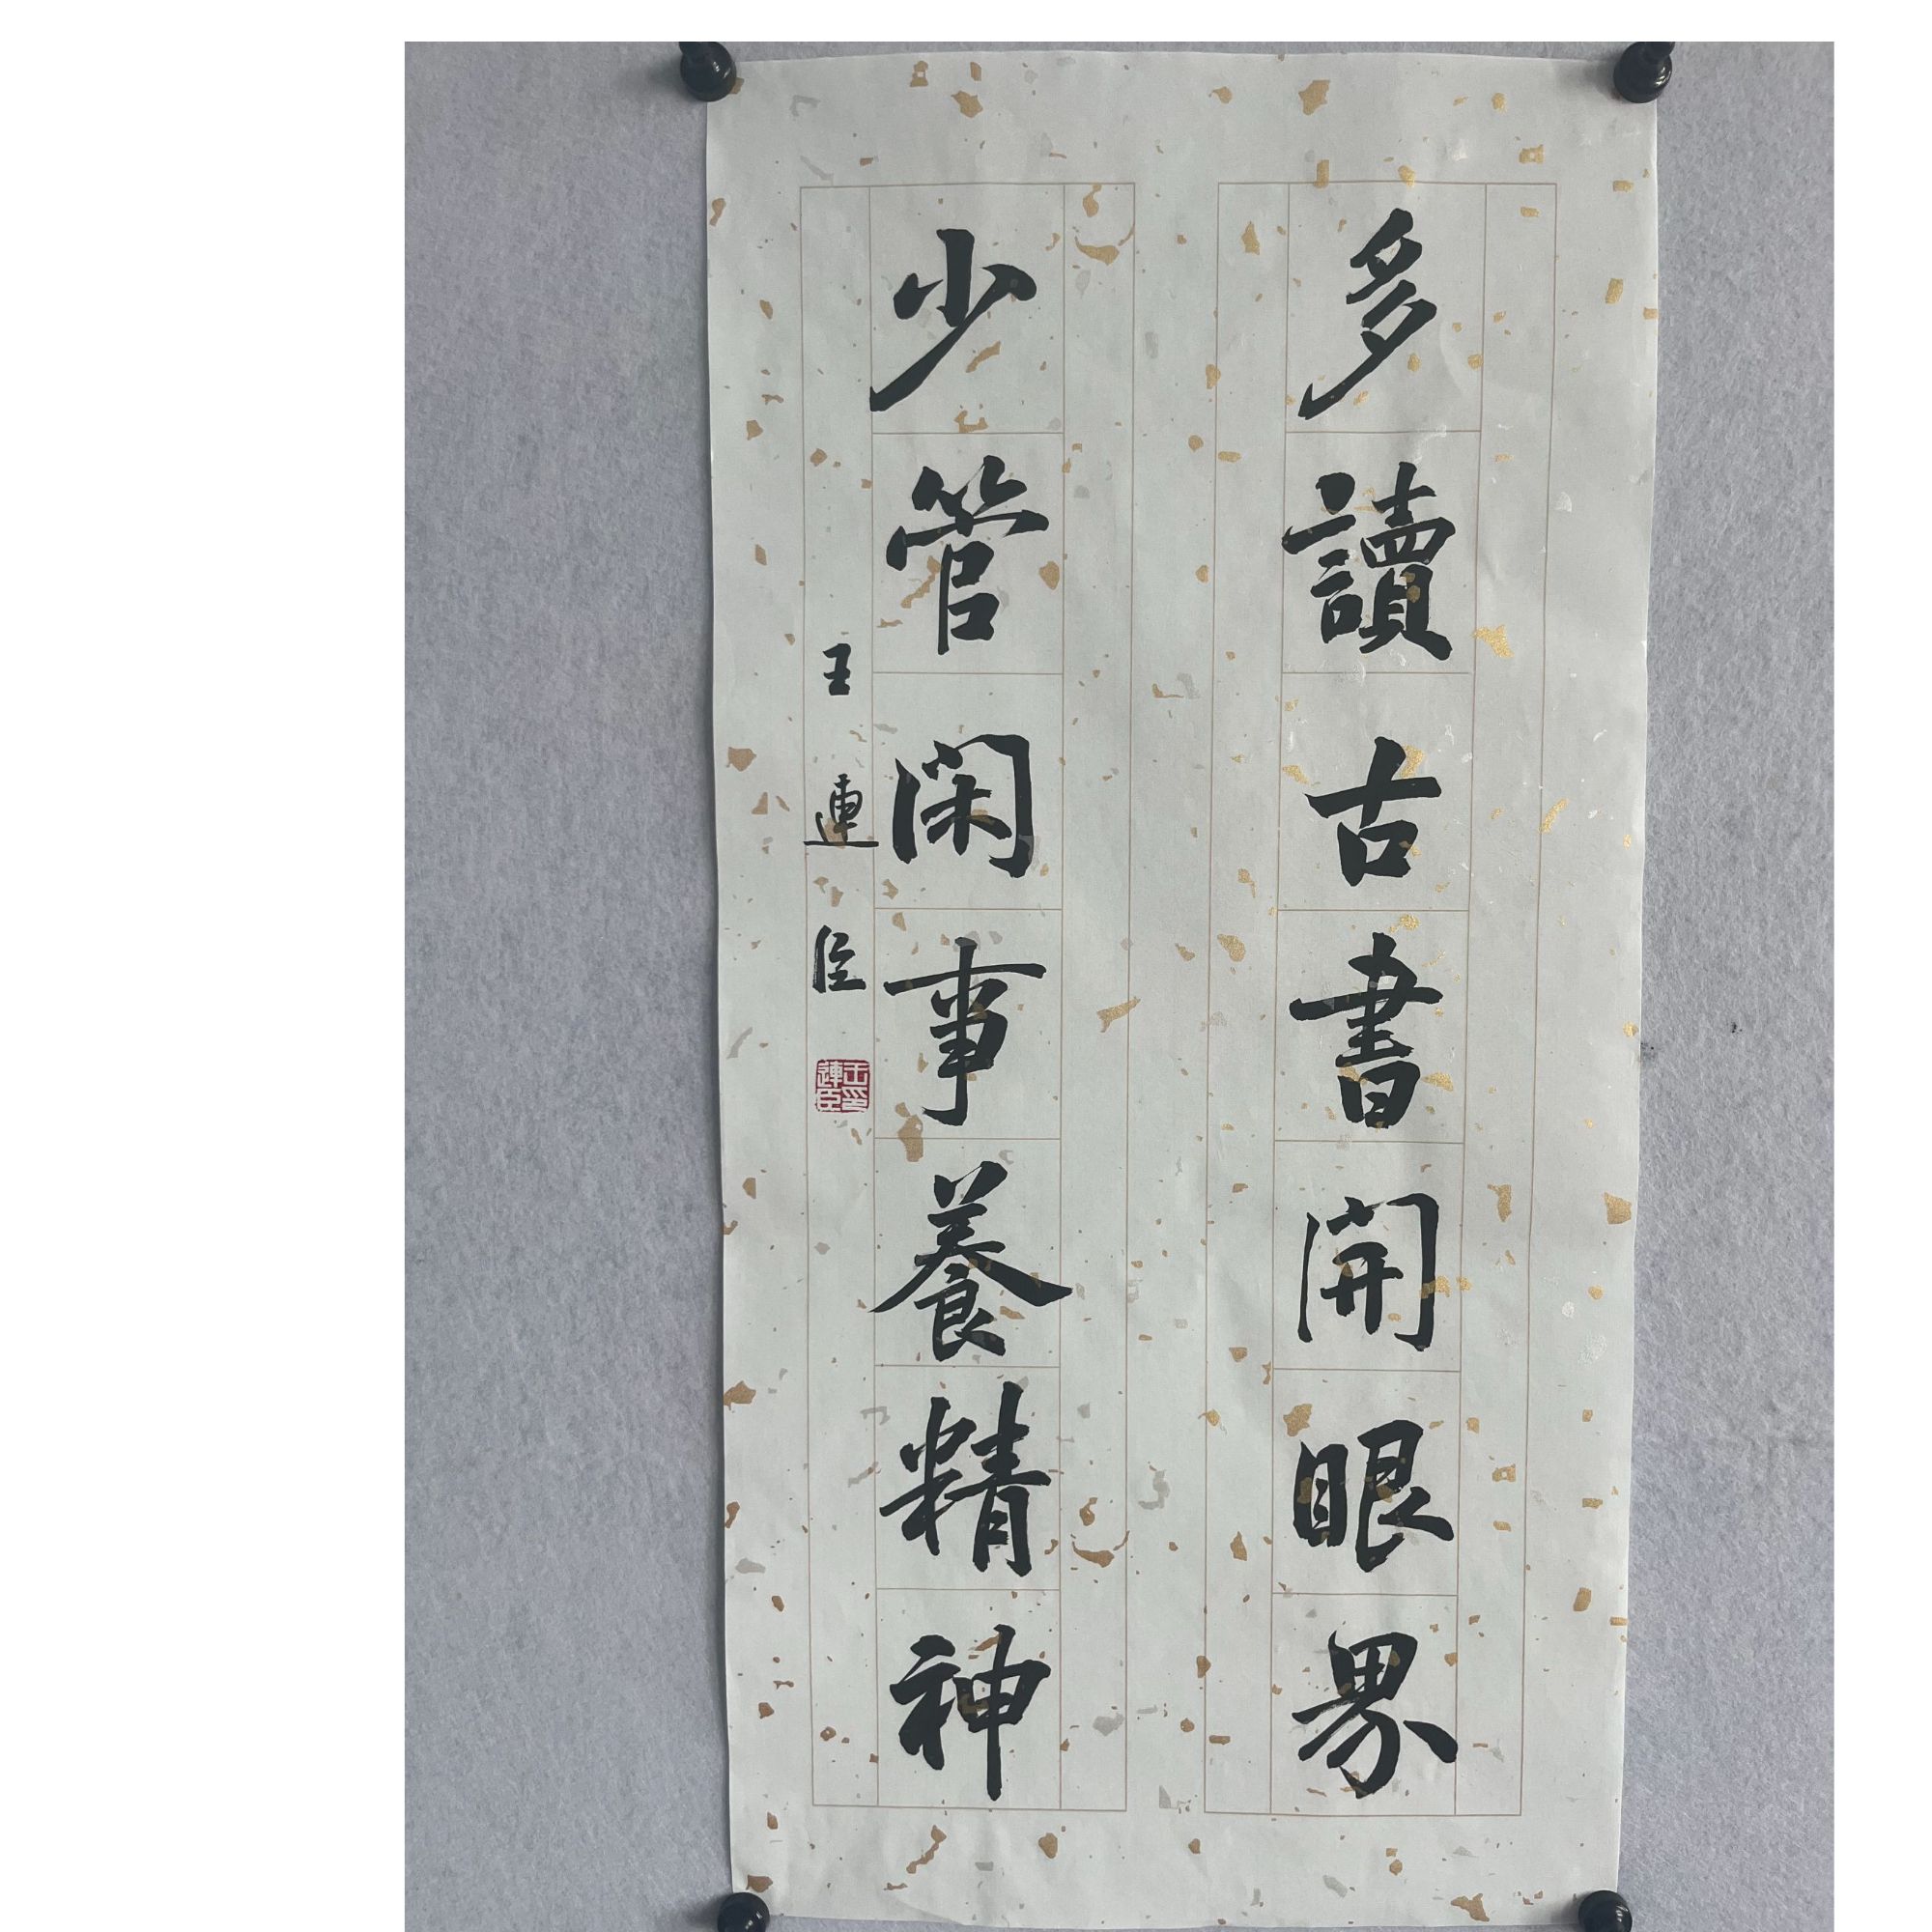 多讀古書開眼界
少管閑事養精神
王連臣
王印連臣